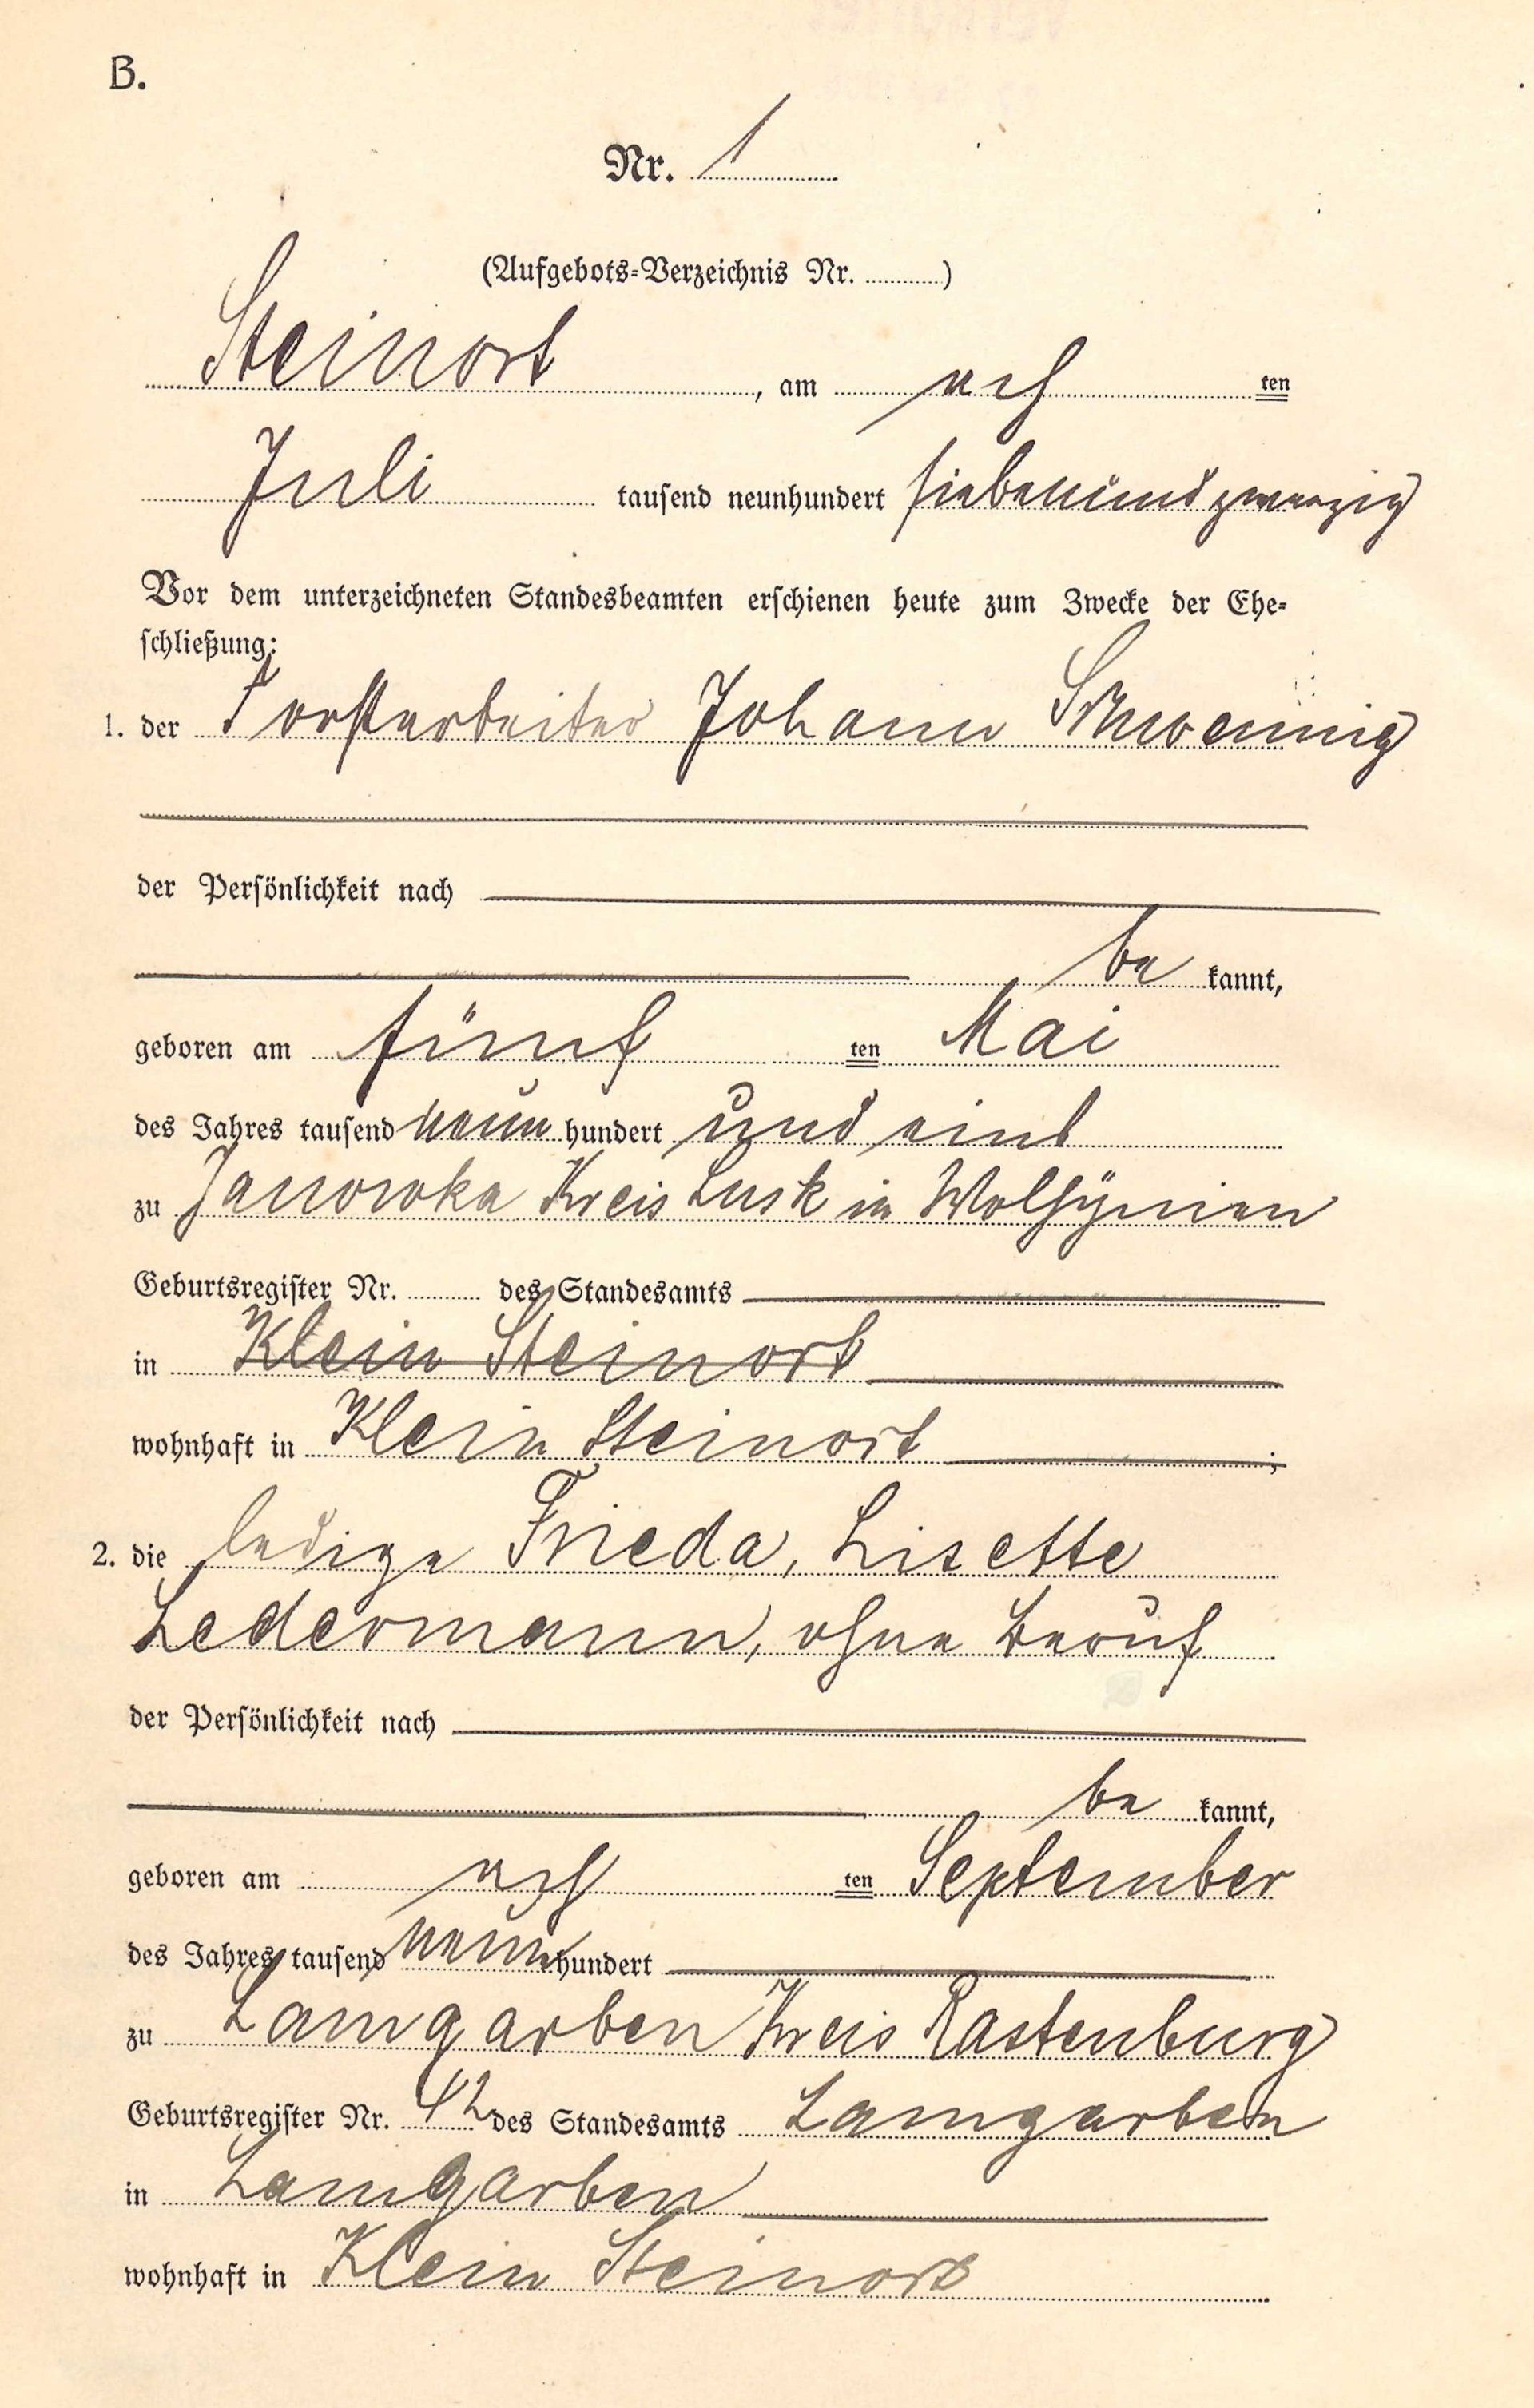 B.
Nr. 1
(Aufgebots-Verzeichnis Nr. ............)
Steinort, am ach ten
Juli tausend neunhundert siebenundzwanzig
Vor dem unterzeichneten Standesbeamten erschienen heute zum Zwecke der Ehe-
schließung:
1. der Forstarbeiter Johann Schwennig
der Persönlichkeit nach
be kannt,
geboren am fünf ten Mai
des Jahres tausend neun hundert und eins
zu Janowka Kreis Lusk in Wolhynien
Geburtsregister Nr. ............ des Standesamts
in Klein Steinort
wohnhaft in Klein Steinort ;
2. die ledige Frieda, Lisette
Ledermann, ohne Beruf
der Persönlichkeit nach
be kannt,
geboren am ach ten September
des Jahres tausend neun hundert
zu Lamgarben Kreis Rastenburg
Geburtsregister Nr. 42 des Standesamts Lamgarben
in Lamgarben
wohnhaft in Klein Steinort